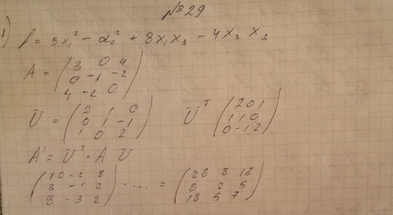 №29
1) f = 3x₁² - x₂² + 8x₁x₃ - 4x₂x₃
A = (3 0 4
0 -1 -2
4 -2 0)
U = (2 1 0
0 1 -1
1 0 2) Uᵀ (2 0 1
1 1 0
0 -1 2)
A' = Uᵀ · A U
(10 -2 8
3 -1 2
8 -3 2) ..... = (28 8 18
8 2 5
18 5 7)